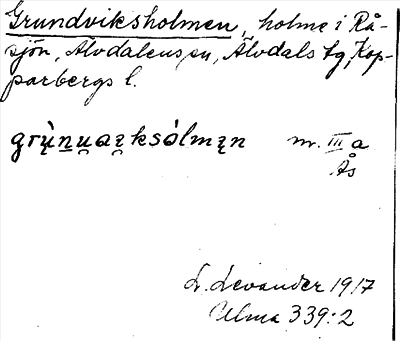 Grundviksholmen, holme i Rå-
sjön, Älvdalens sn, Älvdals tg, Kop-
parbergs l.
grỳnu̯aɛ̨ksɷ́lmɛ̨n m. III a
Ås
L. Levander 1917
Ulma 339:2